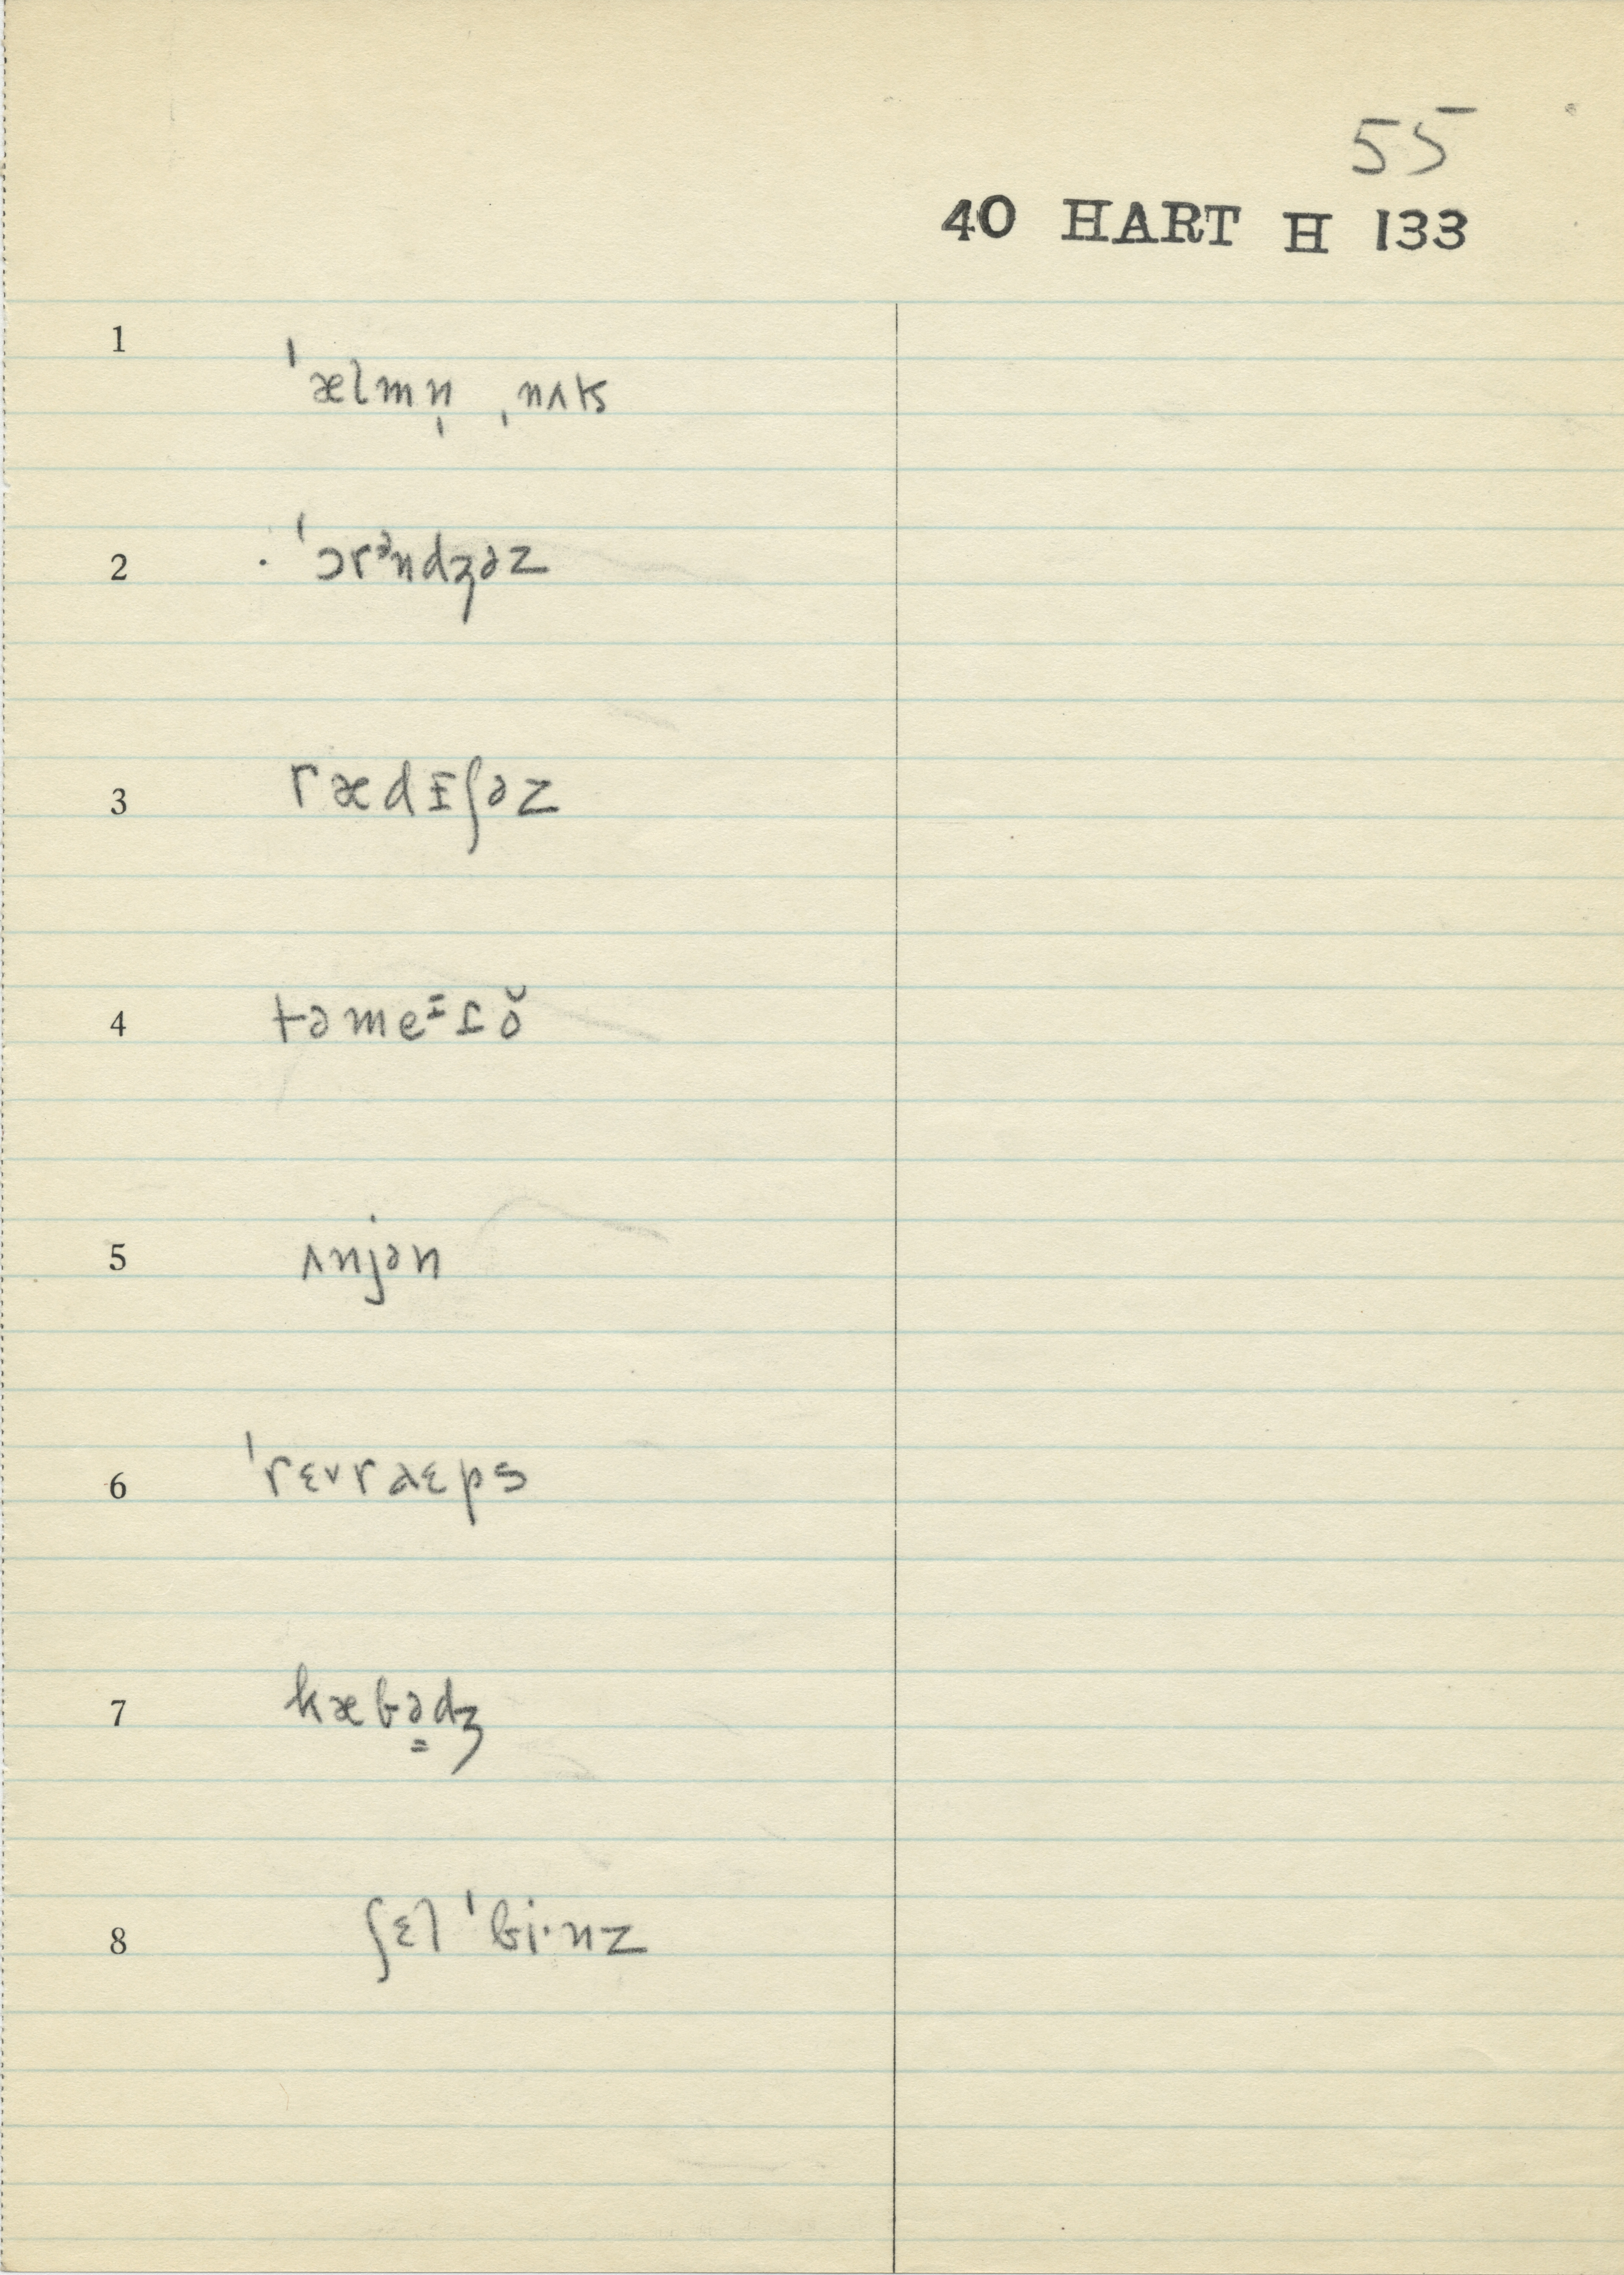 55
40 HART H 133
1 ˈælmn̩ ˌnʌts
2 ˈɔrᵊndʒəz
3 rædɪ̵ʃəz
4 təmeᵻɾə̆
5 ʌnjən
6 ˈrɛvraɛps
7 kæbə̳dʒ
8 ʃɛl ˈbi·nz